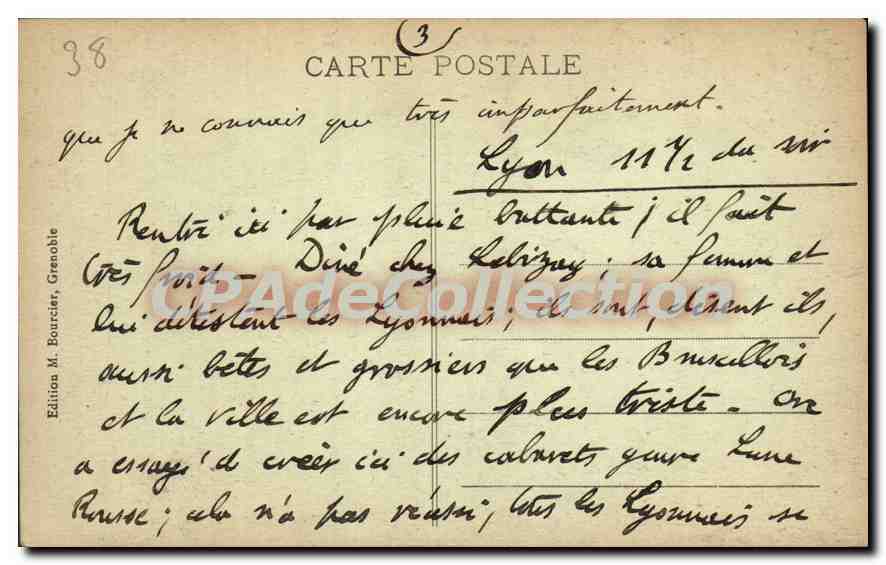 38
3
CARTE POSTALE
que je ne connais que très imparfaitement.
Lyon 11 1/2 du soir
Rentré ici par pluie battante ; il fait
très froid - Diné chez ; sa femme et
lui détestent les Lyonnais ; ils sont, disent ils,
aussi bêtes et grossiers que les Bruxellois
et la ville est encore plus triste - On
a essayé de créer ici des cabarets genre Lune
Rousse ; cela n'a pas réussi, tous les Lyonnais se
Edition M. Bourcier, Grenoble
CPAdeCollection